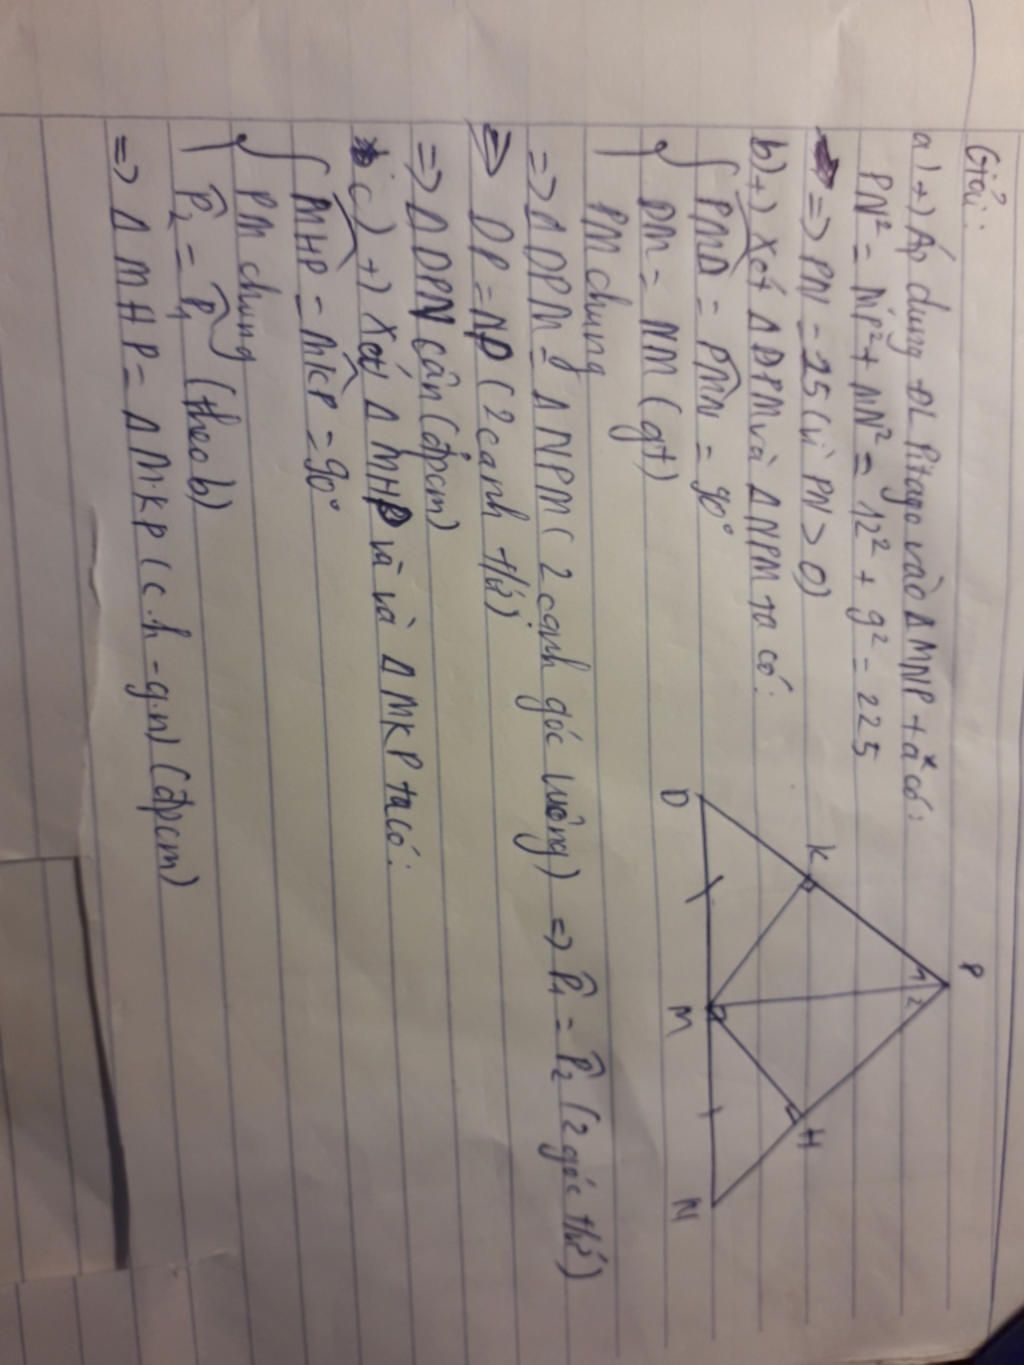 Giải:
a) +) Áp dụng ĐL Pitago vào Δ MNP ta có:
PN² = MP² + MN² = 12² + 9² = 225
=> PN = 25 (vì PN > 0)
b) +) Xét Δ DPM và Δ NPM ta có:
{ PMD̂ = PMN̂ = 90°
DM = NM (gt)
PM chung
=> Δ DPM = Δ NPM (2 cạnh góc vuông) => P̂₁ = P̂₂ (2 góc t/ứ)
=> DP = NP (2 cạnh t/ứ)
=> Δ DPN cân (đpcm)
c) +) Xét Δ MHP và và Δ MKP ta có:
{ MHP̂ = MKP̂ = 90°
PM chung
P̂₂ = P̂₁ (theo b)
=> Δ MHP = Δ MKP (c.h - g.n) (đpcm)
P
1 2
K
H
D
M
N